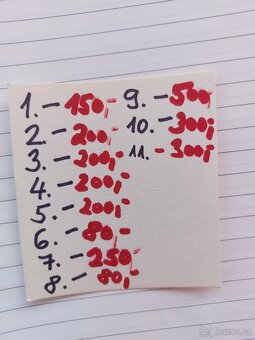 1. - 150,-
2. - 200,-
3. - 200,-
4. - 200,-
5. - 200,-
6. - 80,-
7. - 250,-
8. - 80,-
9. - 500,
10. - 300,-
11. - 300,-